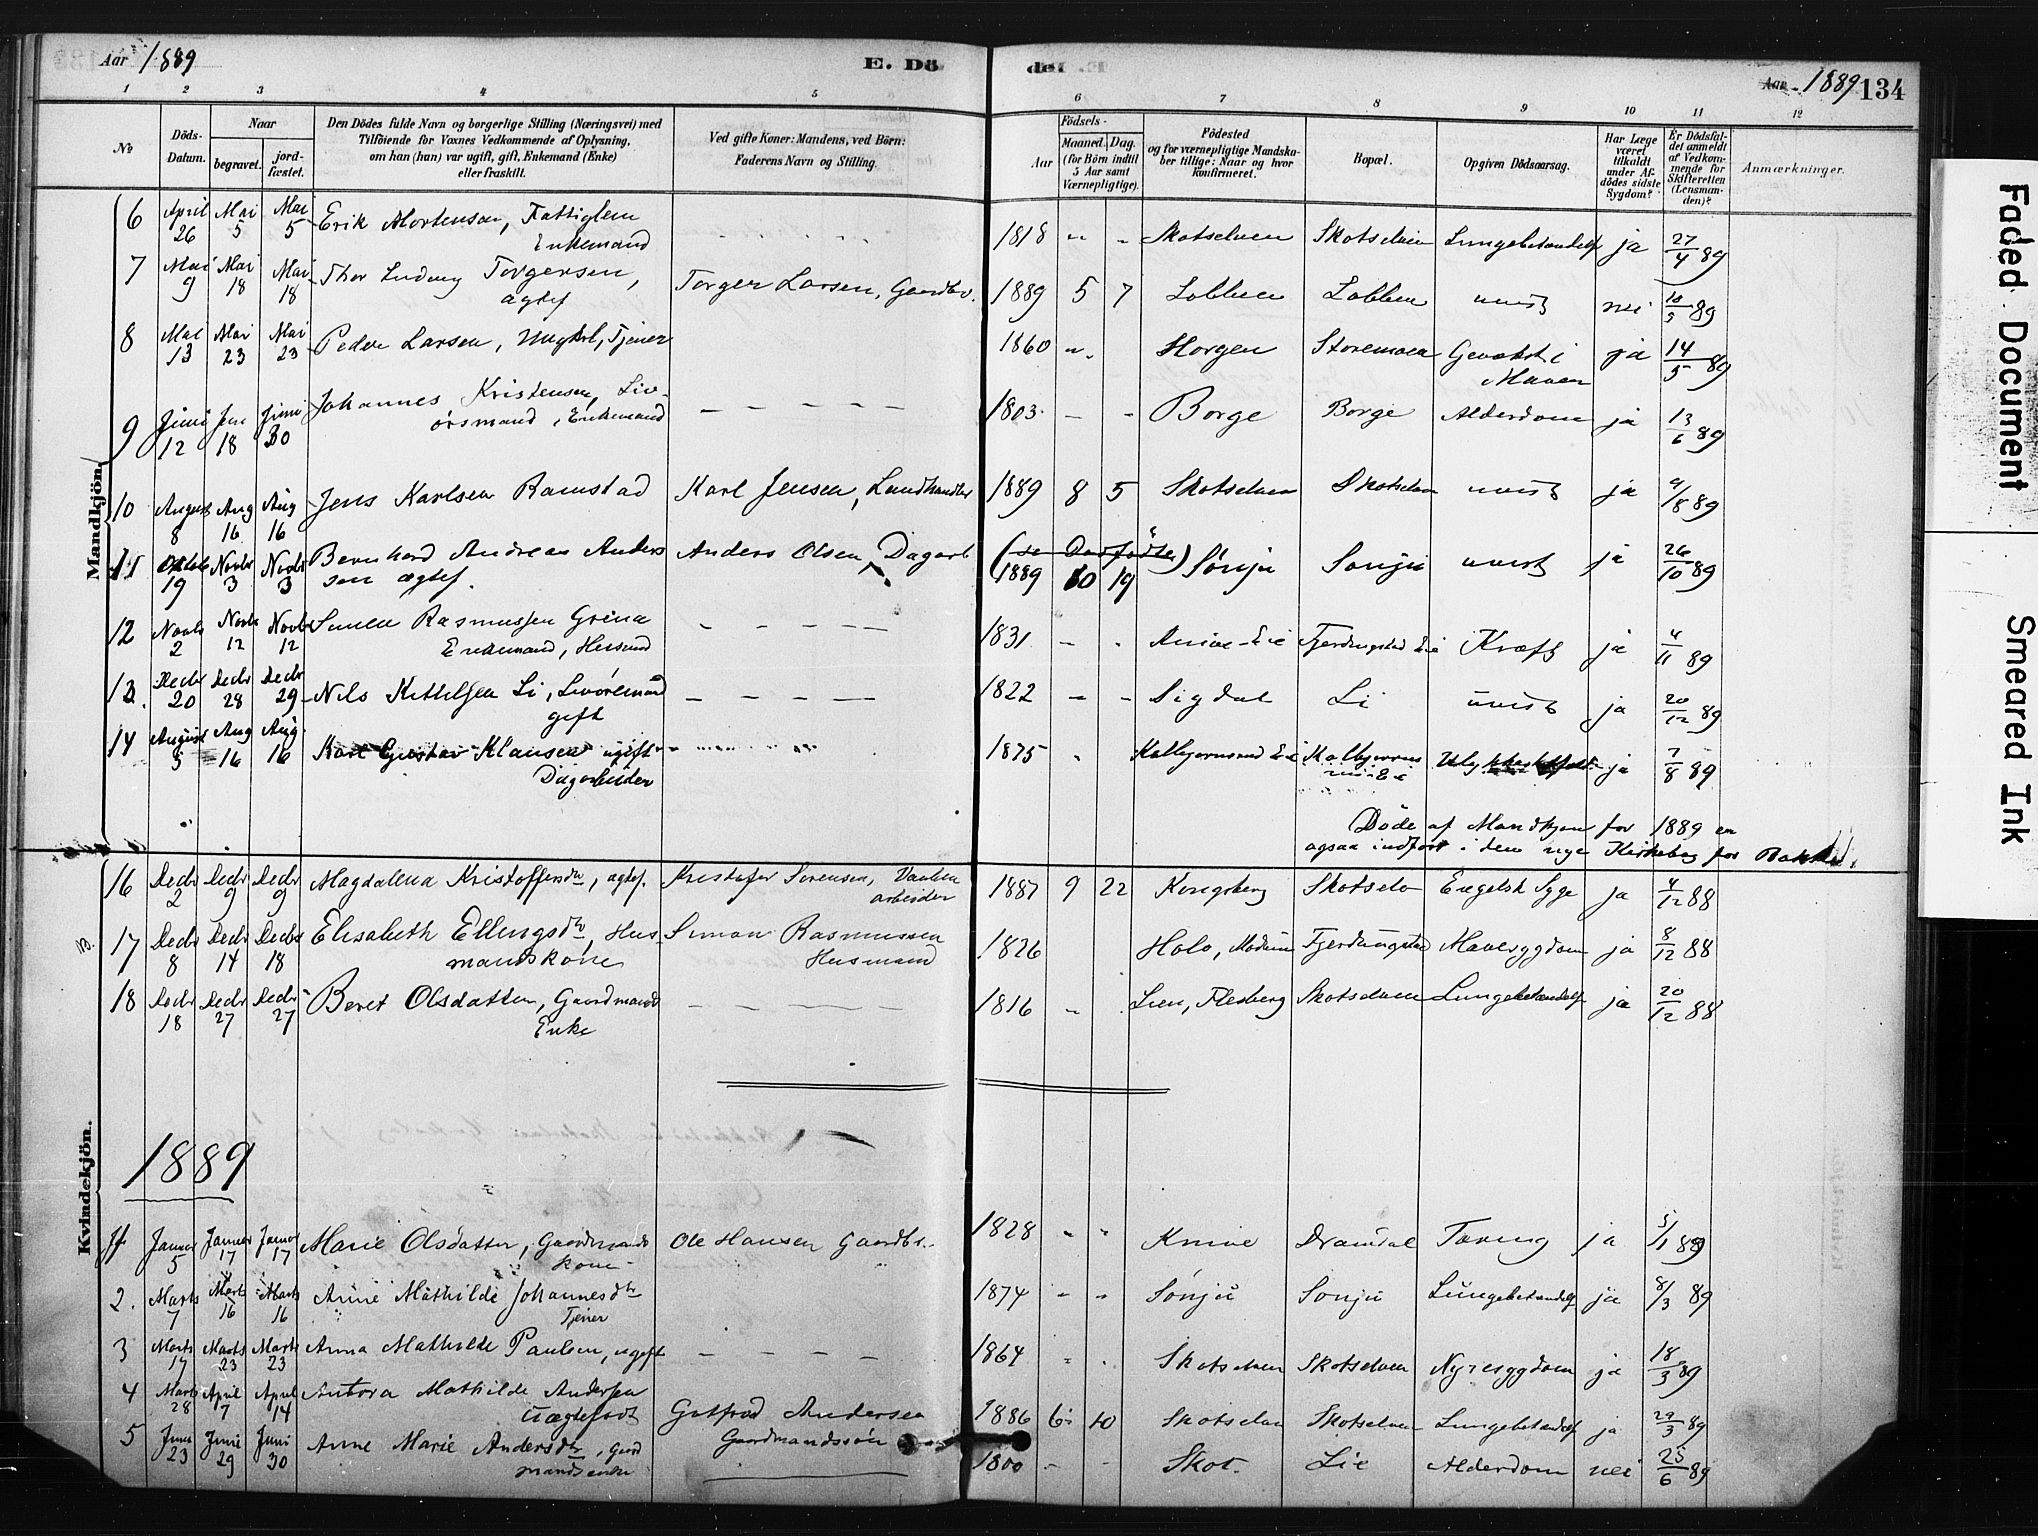 Aar 1889
E. Dö
de
Aar 1889 134
1 2 3 4 5 6 7 8 9 10 11 12
No
Döds-
Datum.
Naar
begravet.
jord-
fæstet.
Den Dödes fulde Navn og borgerlige Stilling (Næringsvei) med
Tilföiende for Voxnes Vedkommende af Oplysning,
om han (hun) var ugift, gift, Enkemand (Enke)
eller fraskilt.
Ved gifte Koner: Mandens, ved Börn:
Faderens Navn og Stilling.
Födsels-
Aar
Maaned. Dag.
(for Börn indtil
5 Aar samt
Værnepligtige).
Födested
og for værnepligtige Mandska-
ber tillige: Naar og hvor
konfirmeret.
Bopæl.
Opgiven Dödsaarsag.
Har Læge
været
tilkaldt
under Af-
dödes sidste
Sygdom?
Er Dödsfal-
det anmeldt
af Vedkom-
mende for
Skifteretten
(Lensman-
den)?
Anmærkninger.
Mandkjön.
6 April 26 Mai 5 Mai 5 Erik Mortensen, Fattiglem
Enkemand 1818 Skotselven Skotselven Lungebetændelse ja 27/4 89
7 Mai 9 Mai 18 Mai 18 Thor Ludvig Torgersen,
ægtef Torger Larsen, Gaardbr. 1889 5 7 Lobben Lobben uvist nei 10/5 89
8 Mai 13 Mai 23 Mai 23 Peder Larsen, Ungkrl, Tjener 1860 Horgen Storemoen Gevækst i
Maven ja 14/5 89
9 Juni 12 Juni 18 Juni 30 Johannes Kristensen, Liv-
örsmand, Enkemand 1803 Borge Borge Alderdom ja 13/6 89
10 August 8 Aug 16 Aug 16 Jens Karlsen Ramstad Karl Jensen, Landhandler 1889 8 5 Skotselven Skotselven uvist ja 9/8 89
11 Oktob 19 Novbr 3 Novbr 3 Bernhard Andreas Anders
sen ægtef. Anders Olsen, Dagarb 1889 10 19 Sönju Sonju uvist ja 26/10 89
12 Novbr 2 Novbr 12 Novbr 12 Simen Rasmussen
Enkemand, Husmand 1831 Fjerdingstad Eie Kræft ja 4/11 89
13. Decbr 20 Decbr 28 Decbr 29 Nils Kittelsen Li, Livöremand
gift 1822 Sigdal Li uvist ja 20/12 89
14 August 5 Aug 16 Aug 16 Karl Gustav Klausen ugift
Dagarbeider 1875 Kolbjornsrud Eie Kolbjorns
rud Eie ja 7/8 89
Döde af Mandkjön for 1889 er
ogsaa indfört i den nye Kirkebog for Bakke.
16 Decbr 2 Decbr 9 Decbr 9 Magdalena Kristoffersdtr, ægtef. Kristofer Sorensen,
arbeider 1887 9 22 Kongsberg Skotselv Engelsk Syge ja 4/12 88
17 Decbr 8 Decbr 14 Decbr 18 Elisabeth Ellingsdtr, Hus-
mandskone Simon Rasmussen
Husmand 1826 Holo, Modum Fjerdingstad Mavesygdom ja 8/12 88
18 Decbr 18 Decbr 27 Decbr 27 Beret Olsdatter, Gaardmands
Enke 1816 Lien, Flesberg Skotselven Lungebetændelse ja 20/12 88
Kvindekjön.
1889
1 Januar 5 Januar 17 Januar 17 Marie Olsdatter, Gaardmands
kone Ole Hansen Gaardbr. 1828 Knive Dramdal Tæring ja 5/1 89
2. Marts 7 Marts 16 Marts 16 Anne Mathilde Johannesdtr
Tjener 1874 Sönjü Sonju Lungebetændelse ja 8/3 89
3 Marts 17 Marts 23 Marts 23 Anna Mathilde Paulsen, ugift 1864 Skotselven Skotselven Nyresygdom ja 18/3 89
4 Marts 28 April 7 April 14 Antora Mathilde Andersen
uægtefødt Gotfred Andersen
Gaardmandssön 1886 6 10 Skotselven Skotselven Lungebetændelse ja 29/3 89
5 Juni 23 Juni 29 Juni 30 Anne Marie Andersdtr, Gaard
mandsenke 1800 Skot. Lie Alderdom nei 25/6 89
Faded Document
Smeared Ink